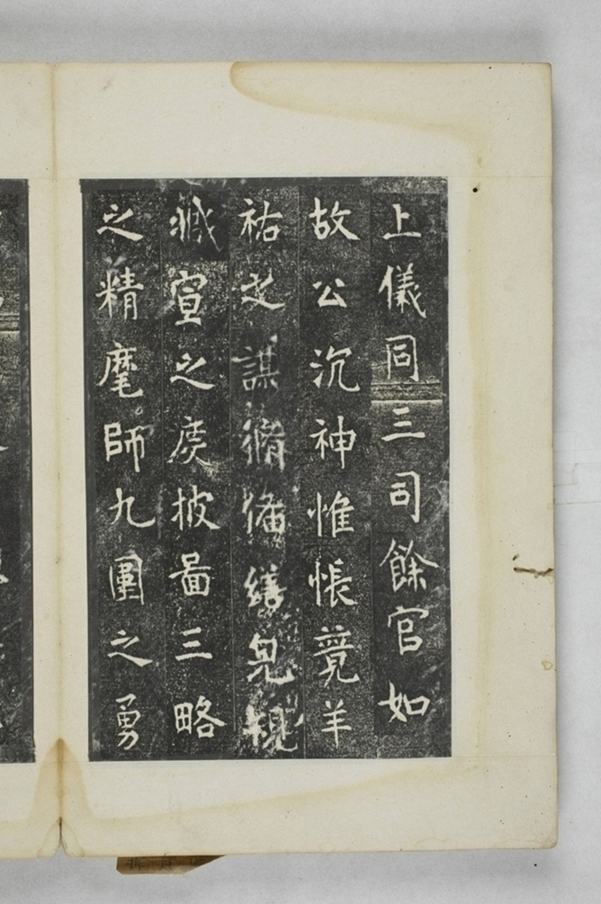 上儀同三司餘官如
故公沉神惟帳竟羊
祜之謀脩備繕
臧宣之 披啚三略
之精麾師九圍之勇